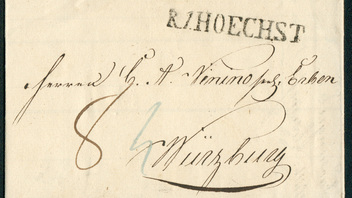 R.1. HOECHST
Herren H. A. Vinino seel. Erben
8 4
Würzburg